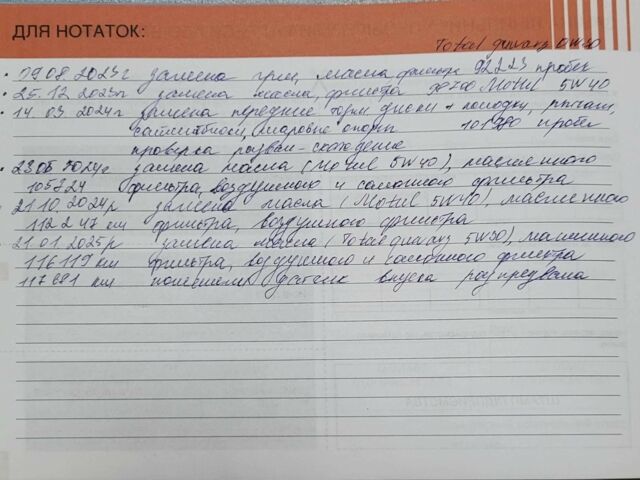 ДЛЯ НОТАТОК:
Total quarz 0W30
09.08.2023г замена грм, масла фильтр 92223 пробег
25.12.2023г замена масла, фильтра 98700 Mobil 5W40
14.03.2024г замена передние торм диски + колодки, рычаги,
сатлентблоки, шаровые опоры 101980 пробег
проверка развал-схождение
23.05.2024г замена масла (Mobil 5W40), масленного
105824 фильтра, воздушного и салонного фильтра
21.10.2024г замена масла (Mobil 5W40), масленного
112247 km фильтра, воздушного фильтра
21.01.2025г замена масла (Total quarz 5W30), масленного
116119 km фильтра, воздушного и салонного фильтра
117681 km поменяли датчик впуска распредвала